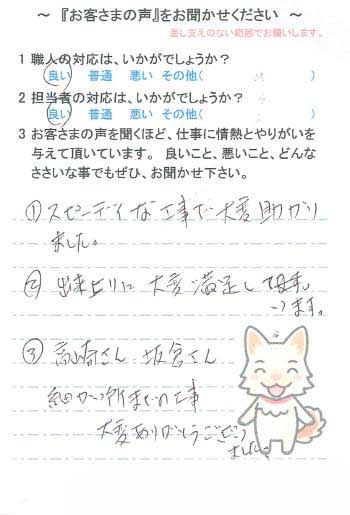 ～ 『お客さまの声』をお聞かせください ～
差し支えのない範囲でお願いします。
1 職人の対応は、いかがでしょうか?
良い 普通 悪い その他( )
2 担当者の対応は、いかがでしょうか?
良い 普通 悪い その他( )
3 お客さまの声を聞くほど、仕事に情熱とやりがいを
与えて頂いています。 良いこと、悪いこと、どんな
ささいな事でもぜひ、お聞かせ下さい。
① スピーディな工事で大変助かり
ました。
② 出来上りに大変満足して
います。
③ さん 坂倉さん
細かい所までの工事
大変ありがとうござい
ました。